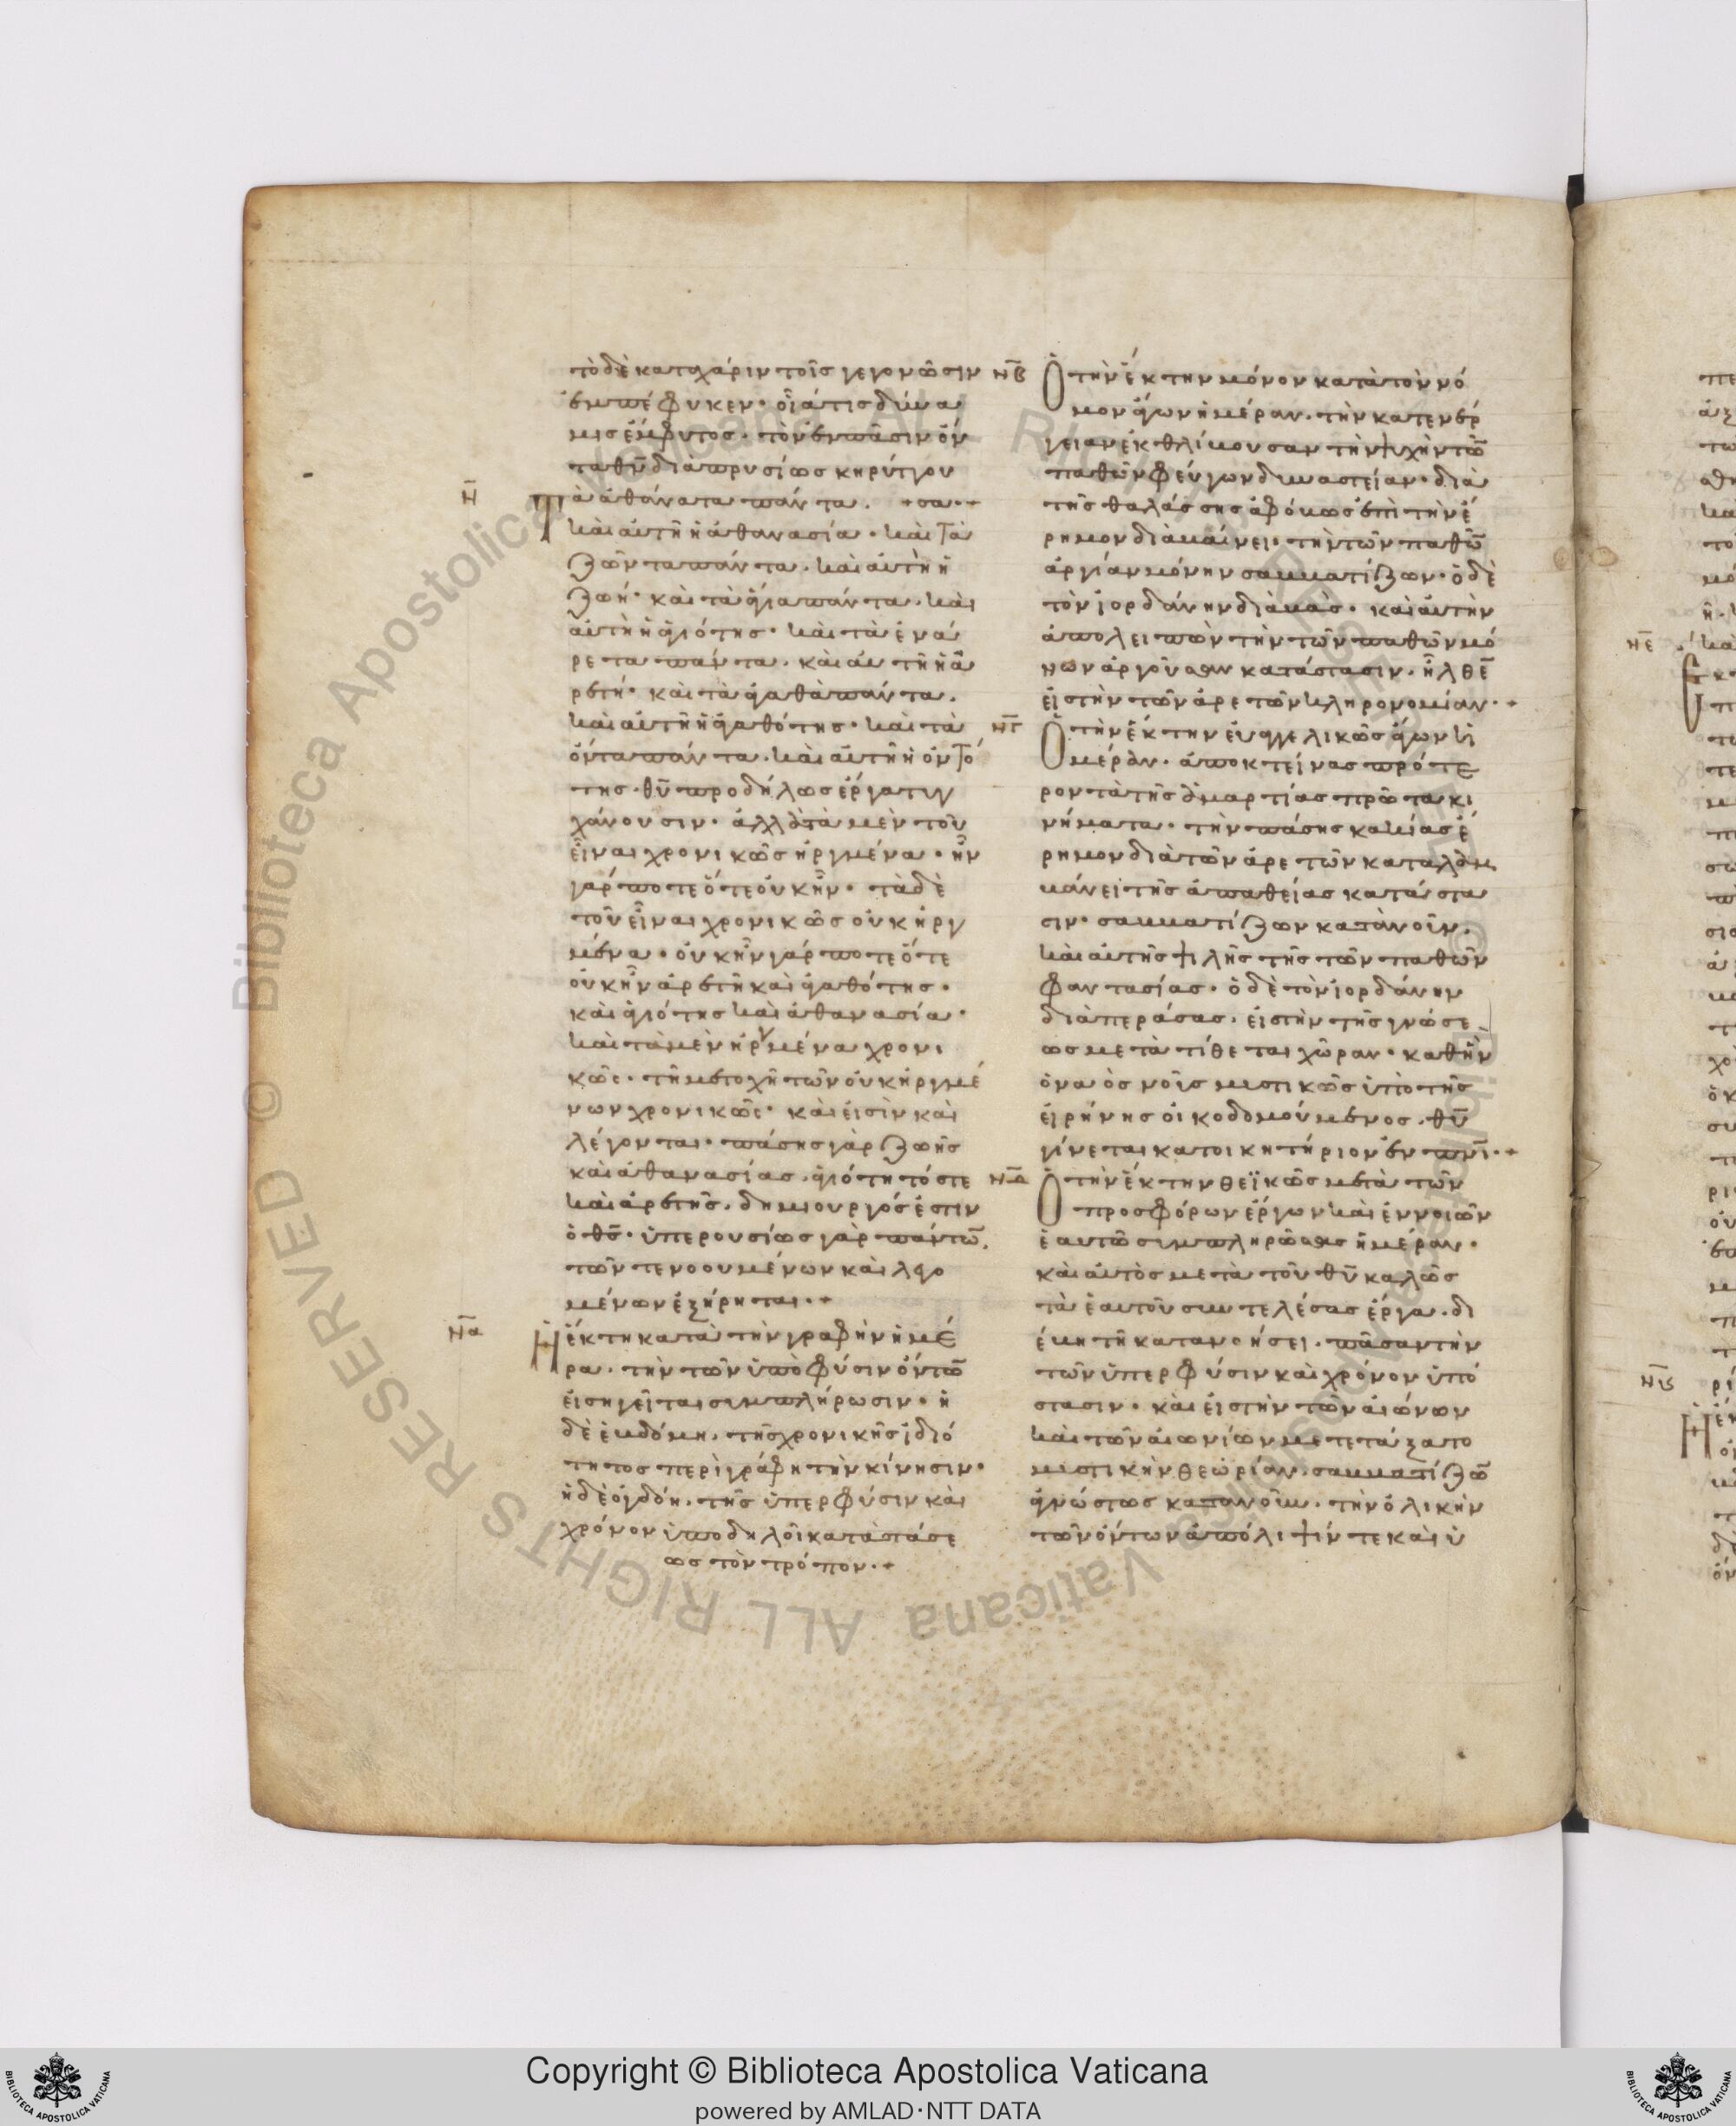 τὸ δὲ κατὰ χάριν τοῖς γεγονῶσιν
ἐμπέφυκεν· οἷά τις δύνα
μις ἔμφυτος· τὸν ἐν πᾶσιν ὄν
τα θ̅υ̅ διαπρυσίως κηρύττου
σα·+
ν̅
Τὰ ἀθάνατα πάντα.
καὶ αὐτὴ ἡ ἀθανασία· καὶ τὰ
ζῶντα πάντα. καὶ αὐτὴ ἡ
ζωή· καὶ τὰ ἅγια πάντα. καὶ
αὐτὴ ἡ ἁγιότης· καὶ τὰ ἐνά
ρετα πάντα. καὶ αὐτὴ ἡ ἀ
ρετή· καὶ τὰ ἀγαθὰ πάντα.
καὶ αὐτὴ ἡ ἀγαθότης· καὶ τὰ
ὄντα πάντα. καὶ αὐτὴ ἡ ὀντό
της· θ̅υ̅ προδήλως ἔργα τυγ
χάνουσιν· ἀλλὰ τὰ μὲν τοῦ
εἶναι χρονικῶς ἠργμένα· ἦν
γάρ ποτε ὅτε οὐκ ἦν· τὰ δὲ
τοῦ εἶναι χρονικῶς οὐκ ἠργ
μένα· οὐκ ἦν γάρ ποτε ὅτε
οὐκ ἦν ἀρετὴ καὶ ἀγαθότης·
καὶ ἁγιότης καὶ ἀθανασία·
καὶ τὰ μὲν ἠργμένα χρονι
κῶς· τῇ μετοχῇ τῶν οὐκ ἠργμέ
νων χρονικῶς· καὶ εἰσὶν καὶ
λέγονται· πάσης γὰρ ζωῆς
καὶ ἀθανασίας. ἁγιότητός τε
καὶ ἀρετῆς. δημιουργός ἐστιν
ὁ θ̅ς̅· ὑπερουσίως γὰρ πάντω̅.
τῶν τε νοουμένων καὶ λεγο
μένων ἐξήρηται·+
ν̅α̅
Ἡ ἕκτη κατὰ τὴν γραφὴν ἡμέ
ρα. τὴν τῶν ὑπὸ φύσιν ὄντω̅
εἰσηγεῖται συμπλήρωσιν· ἡ
δὲ ἑβδόμη. τῆς χρονικῆς ἰδιό
τητος περιγράφη τὴν κίνησιν·
ἡ δὲ ὀγδόη. τῆς ὑπὲρ φύσιν καὶ
χρόνον ὑποδηλοῖ καταστάσε
ως τὸν τρόπον·+
ν̅β̅
Ὁ τὴν ἕκτην μόνον κατὰ τὸν νό
μον ἄγων ἡμέραν. τὴν κατ' ἐνέρ
γειαν ἐκθλίβουσαν τὴν ψυχὴν τῶ̅
παθῶν φεύγων δυναστείαν· διὰ
τῆς θαλάσσης ἀφόβως ἐπὶ τὴν ἔ
ρημον διαβαίνει· τὴν τῶν παθῶ̅
ἀργίαν μόνην σαββατίζων· ὁ δὲ
τὸν ἰορδάνην διαβὰς· καὶ αὐτὴν
ἀπολειπὼν τὴν τῶν παθῶν μό
νων ἀργοῦσαν κατάστασιν. ἦλθε̅
εἰς τὴν τῶν ἀρετῶν κληρονομίαν·+
ν̅γ̅
Ὁ τὴν ἕκτην εὐαγγελικῶς ἄγων ἡ
μέραν. ἀποκτείνας πρότε
ρον τὰ τῆς ἁμαρτίας πρῶτα κι
νήματα. τὴν πάσης κακίας ἔ
ρημον διὰ τῶν ἀρετῶν καταλαμ
βάνει τῆς ἀπαθείας κατάστα
σιν· σαββατίζων κατὰ νοῦν.
καὶ αὐτῆς ψιλῆς τῆς τῶν παθῶν
φαντασίας· ὁ δὲ τὸν ἰορδάνην
διαπεράσας. εἰς τὴν τῆς γνώσε
ως μετατίθεται χῶραν· καθ' ἣν
ὁ ναὸς νοῦς μυστικῶς ὑπὸ τῆς
εἰρήνης οἰκοδομούμενος. θ̅υ̅
γίνεται κατοικητήριον ἐν π̅ν̅ι̅·+
ν̅δ̅
Ὁ τὴν ἕκτην θεϊκῶς μετὰ τῶν
προσφόρων ἔργων καὶ ἐννοιῶν
ἑαυτῶ συμπληρώσας ἡμέραν·
καὶ αὐτὸς μετὰ τοῦ θ̅υ̅ καλῶς
τὰ ἑαυτοῦ συντελέσας ἔργα. δι
έβη τῇ κατανοήσει. πᾶσαν τὴν
τῶν ὑπὸ φύσιν καὶ χρόνον ὑπό
στασιν· καὶ εἰς τὴν τῶν αἰώνων
καὶ τῶν αἰωνίων μετετάξατο
μυστικὴν θεωρίαν. σαββατίζω̅
ἀγνώστως κατὰ νοῦν. τὴν ὁλικὴν
τῶν ὄντων ἀπόλειψίν τε καὶ ὑ
ν̅ε̅
ν̅ϛ̅
Copyright © Biblioteca Apostolica Vaticana
powered by AMLAD·NTT DATA